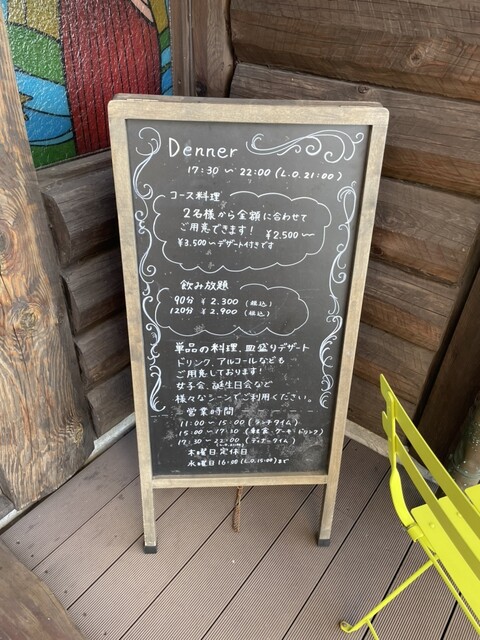 Denner
17:30 〜 22:00 (L.O. 21:00)
コース料理
2名様から金額に合わせて
ご用意できます! ¥2,500〜
¥3,500〜デザート付きです
飲み放題
90分 ¥2.300 (税込)
120分 ¥2.900 (税込)
単品の料理、皿盛りデザート
ドリンク、アルコールなども
ご用意しております!
女子会、誕生日会など
様々なシーンでご利用ください。
営業時間
11:00〜15:00 (ランチタイム)
15:00〜17:30 (軽食・ケーキ・ドリンク)
17:30〜22:00 (ディナータイム)
木曜日定休日
水曜日16:00 (L.O.15:00)まで